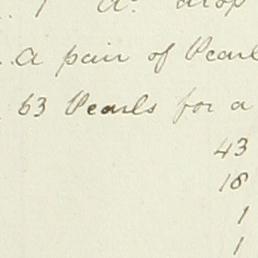 1 Do. drop
A pair of Pearl
63 Pearls for a
43
18
1
1